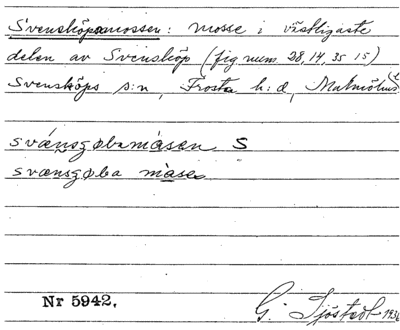 Svensköpsmossen: mosse i västligaste
delen av Svensköp (fig num. 28, 14, 35 15)
Svensköps s:n, Frosta h:d, Malmöhus l.
svænsgøbamåsen S
svænsgøba måsa
Nr 5942.
G. Sjöstedt 1936